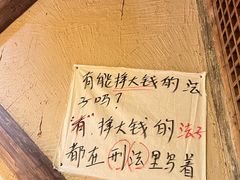 有能挣大钱的法
子吗？
“有”挣大钱的法子
都在刑法里写着